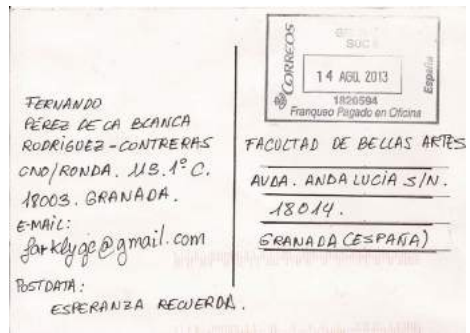 FERNANDO
PÉREZ DE LA BLANCA
RODRÍGUEZ-CONTRERAS
CNO/RONDA. 113.1º C.
18003. GRANADA.
E-MAIL:
farklyge@gmail.com
POSTDATA:
ESPERANZA RECUERDA.
CORREOS
14 AGO. 2013
España
1820594
Franqueo Pagado en Oficina
FACULTAD DE BELLAS ARTES
AVDA. ANDALUCÍA S/N.
18014.
GRANADA (ESPAÑA)